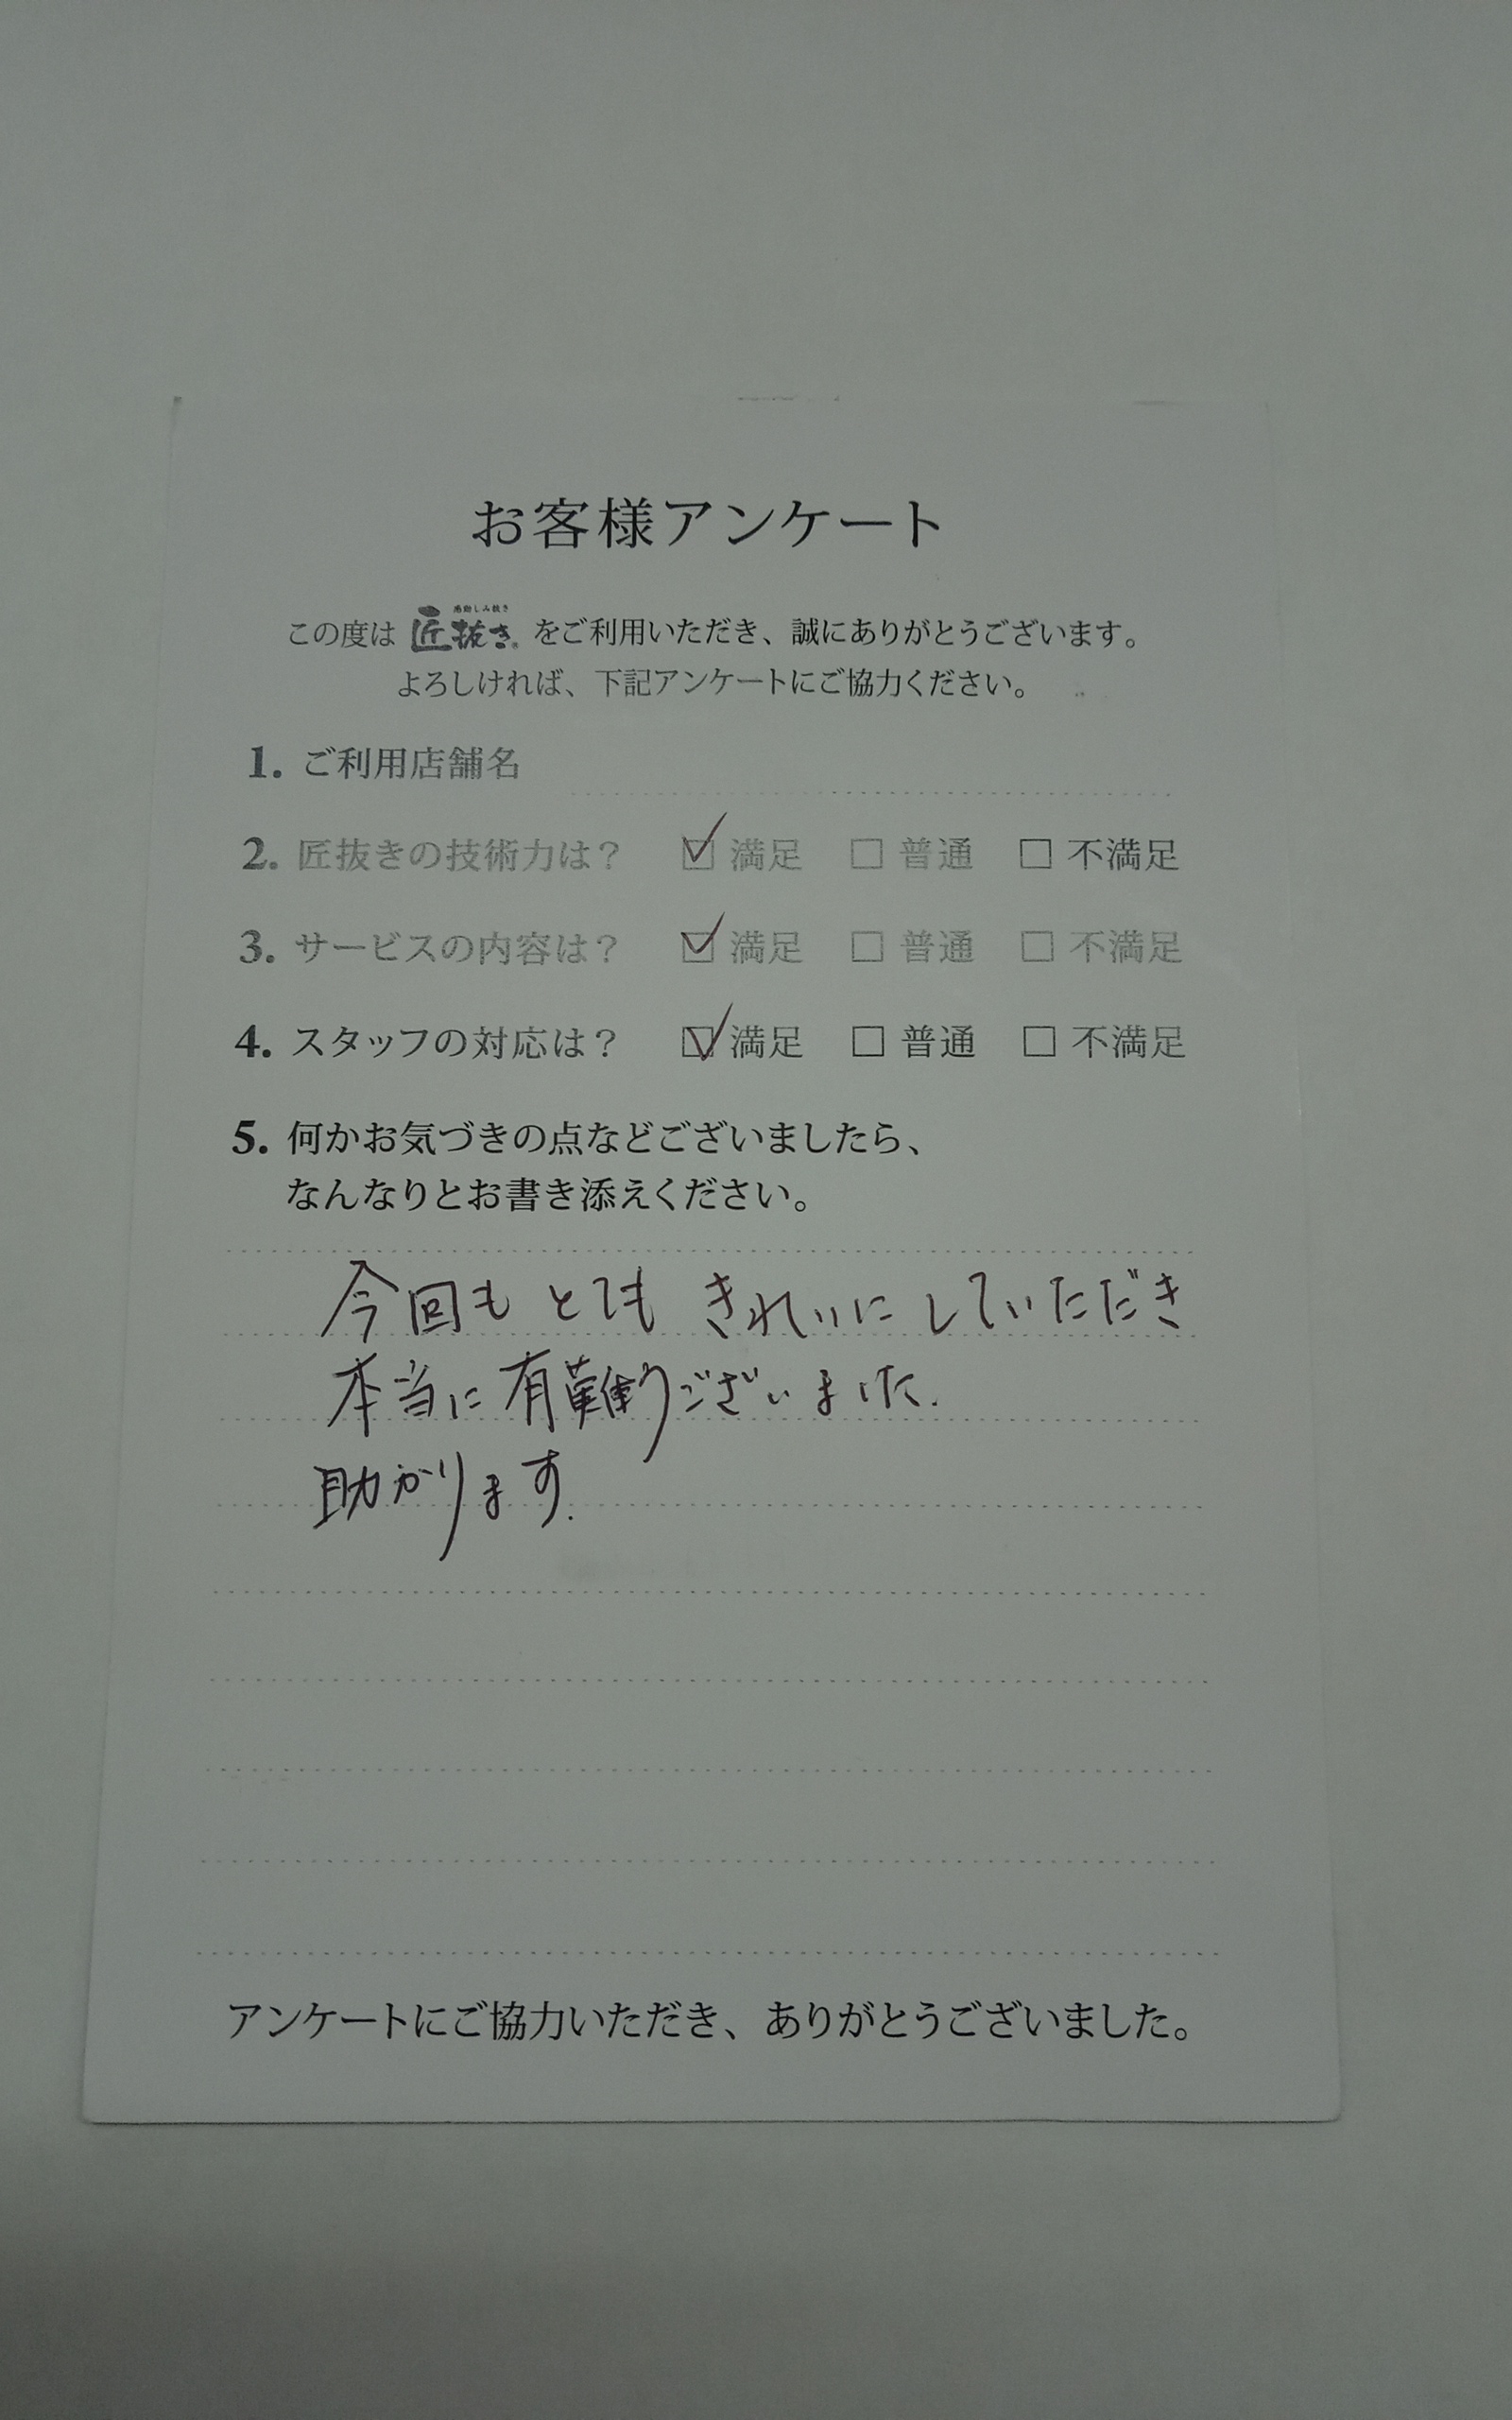 お客様アンケート
感動しみ抜き
この度は 匠抜き をご利用いただき、誠にありがとうございます。
よろしければ、下記アンケートにご協力ください。
1. ご利用店舗名
2. 匠抜きの技術力は? ☑ 満足 □ 普通 □ 不満足
3. サービスの内容は? ☑ 満足 □ 普通 □ 不満足
4. スタッフの対応は? ☑ 満足 □ 普通 □ 不満足
5. 何かお気づきの点などございましたら、
なんなりとお書き添えください。
今回も とても きれいに していただき
本当に 有難うございました.
助かります.
アンケートにご協力いただき、ありがとうございました。